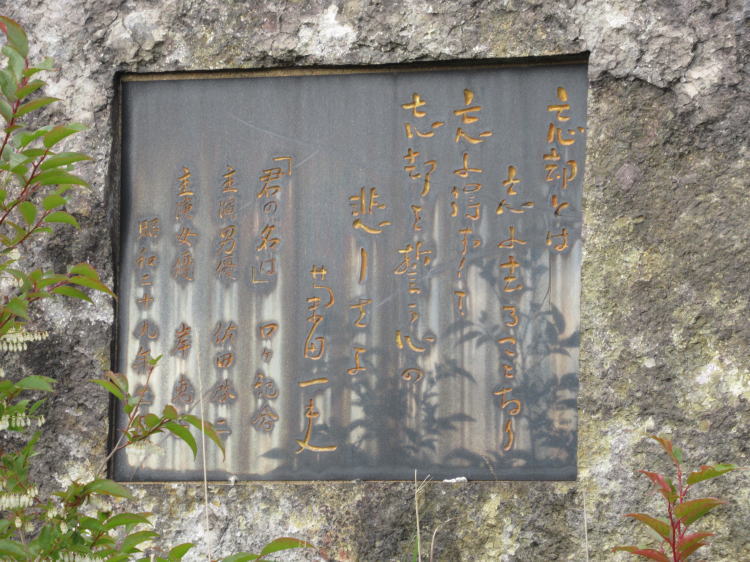 忘却とは
忘れ去ることなり
忘れ得ずして
忘却を誓う心の
悲しさよ
菊田一夫
「君の名は」ロケ記念
主演男優 佐田啓二
主演女優 岸 惠
昭和二十九年